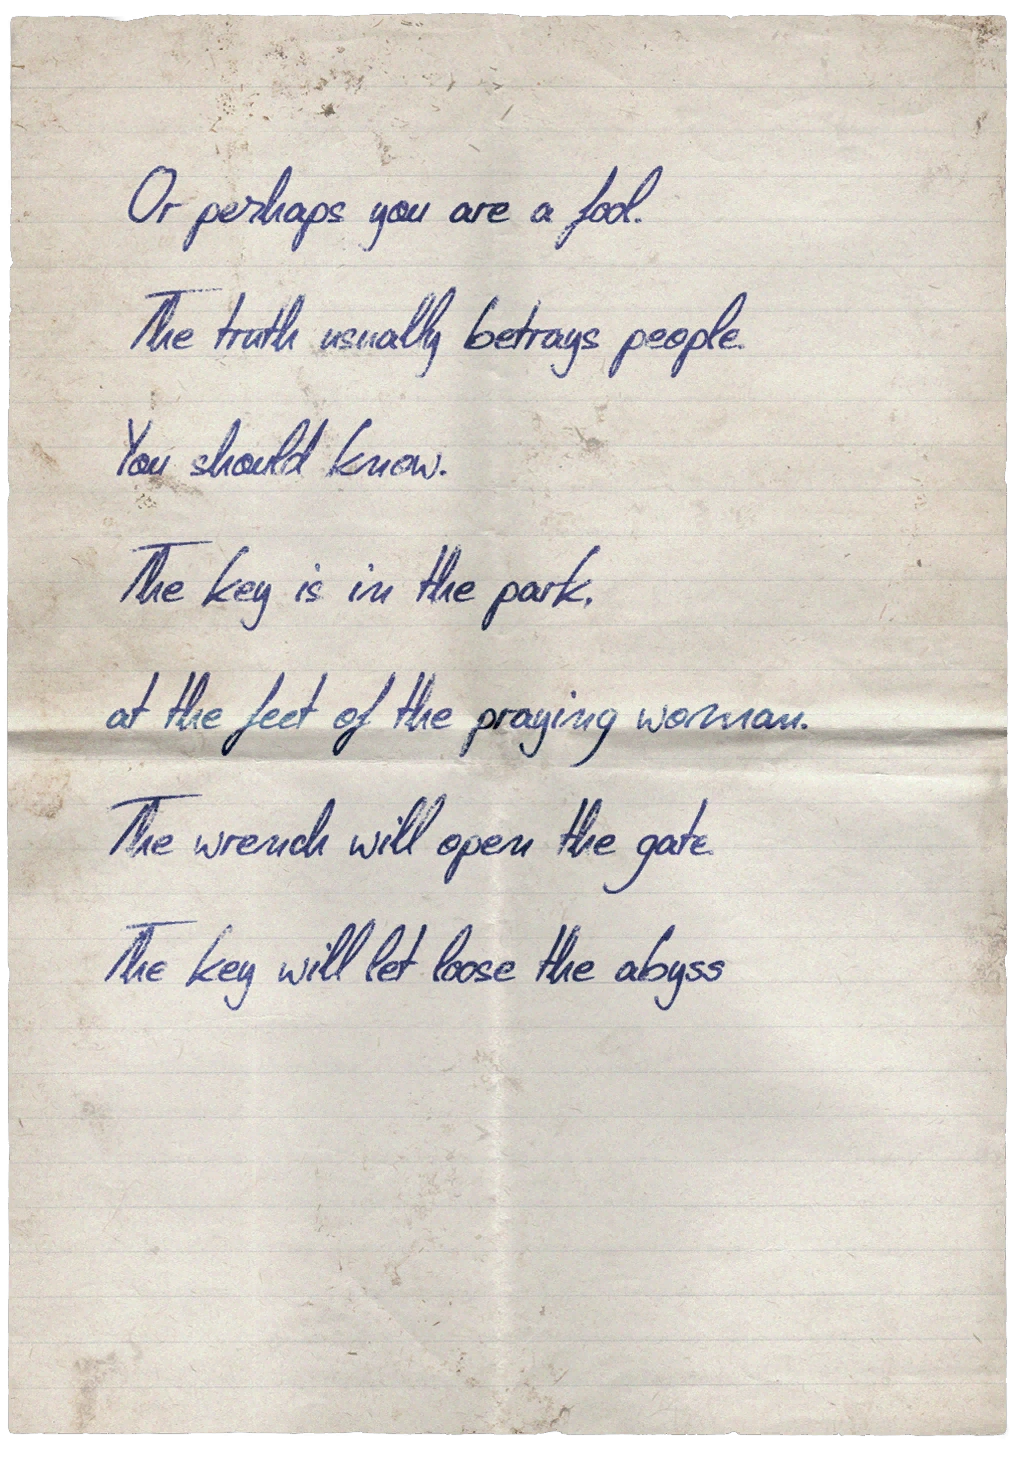 Or perhaps you are a fool.
The truth usually betrays people.
You should know.
The key is in the park,
at the feet of the praying woman.
The wrench will open the gate
The key will let loose the abyss